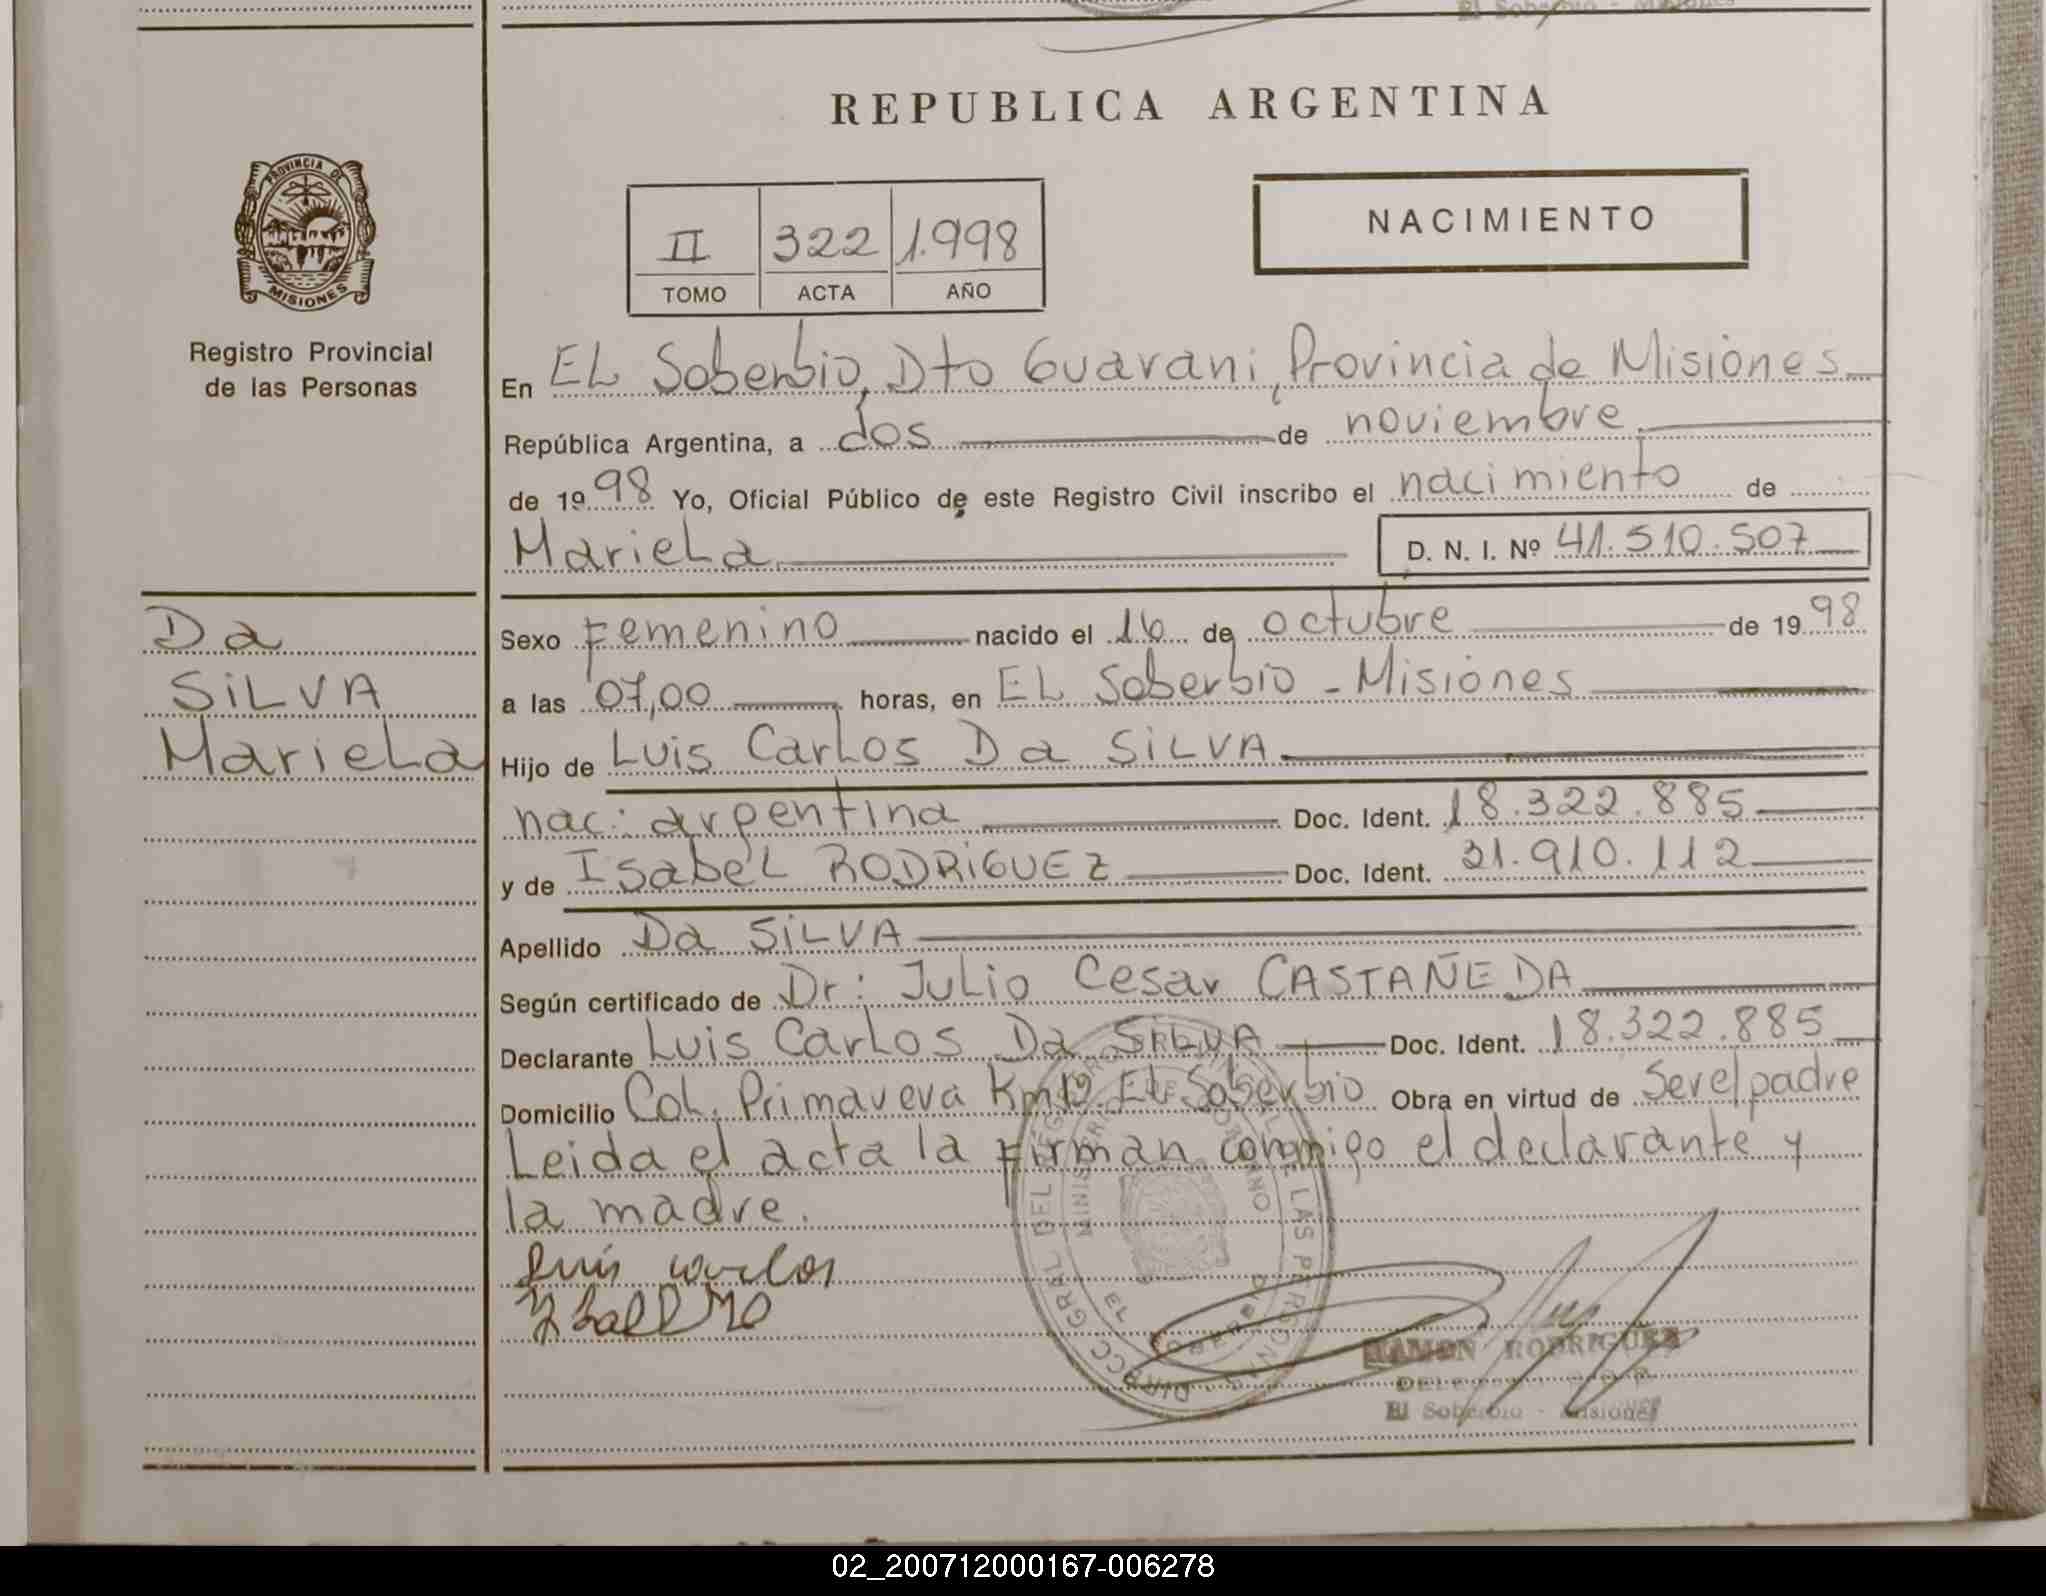 El Soberbio - Misiones
REPUBLICA ARGENTINA
PROVINCIA DE
MISIONES
NACIMIENTO
II 322 1.998
TOMO ACTA AÑO
Registro Provincial
de las Personas
En EL Soberbio, Dto Guarani, Provincia de Misiones
República Argentina, a dos de noviembre
de 1998 Yo, Oficial Público de este Registro Civil inscribo el nacimiento de
MarieLa D. N. I. Nº 41.510.507
Da
SiLVA
MarieLa
Sexo Femenino nacido el 16 de octubre de 1998
a las 07,00 horas, en EL Soberbio - Misiones
Hijo de Luis CarLos Da SiLVA
nac: argentina Doc. Ident. 18.322.885
y de IsabeL RODRiGUEZ Doc. Ident. 31.910.112
Apellido Da SiLVA
Según certificado de Dr: JuLio Cesar CASTAÑEDA
Declarante Luis CarLos Da SiLVA Doc. Ident. 18.322.885
Domicilio CoL. Primavera Km EL Soberbio Obra en virtud de Ser el padre
Leida el acta la Firman conmigo el declarante y
la madre.
Luis carlos
RAMON RODRIGUEZ
El Soberbio - Misiones
02_200712000167-006278